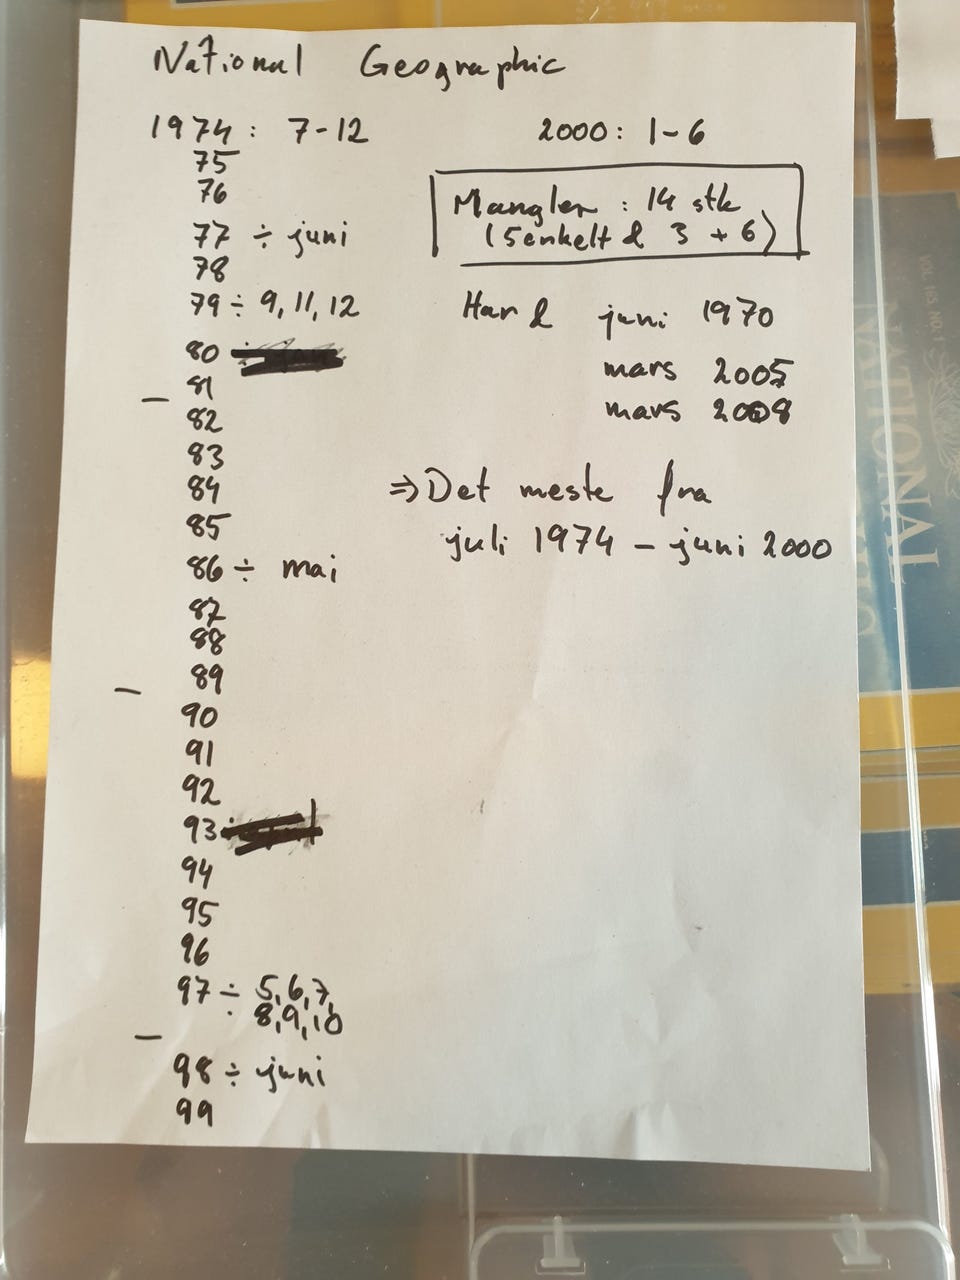 National Geographic
1974: 7-12
75
76
77 ÷ juni
78
79 ÷ 9, 11, 12
80
81
82
83
84
85
86 ÷ mai
87
88
89
90
91
92
93
94
95
96
97 ÷ 5, 6, 7,
8, 9, 10
98 ÷ juni
99
2000: 1-6
Mangler: 14 stk
(5 enkelt & 3 + 6)
Har & juni 1970
mars 2005
mars 2008
⇒ Det meste fra
juli 1974 - juni 2000
VOL. 165, NO. 1
NATIONAL